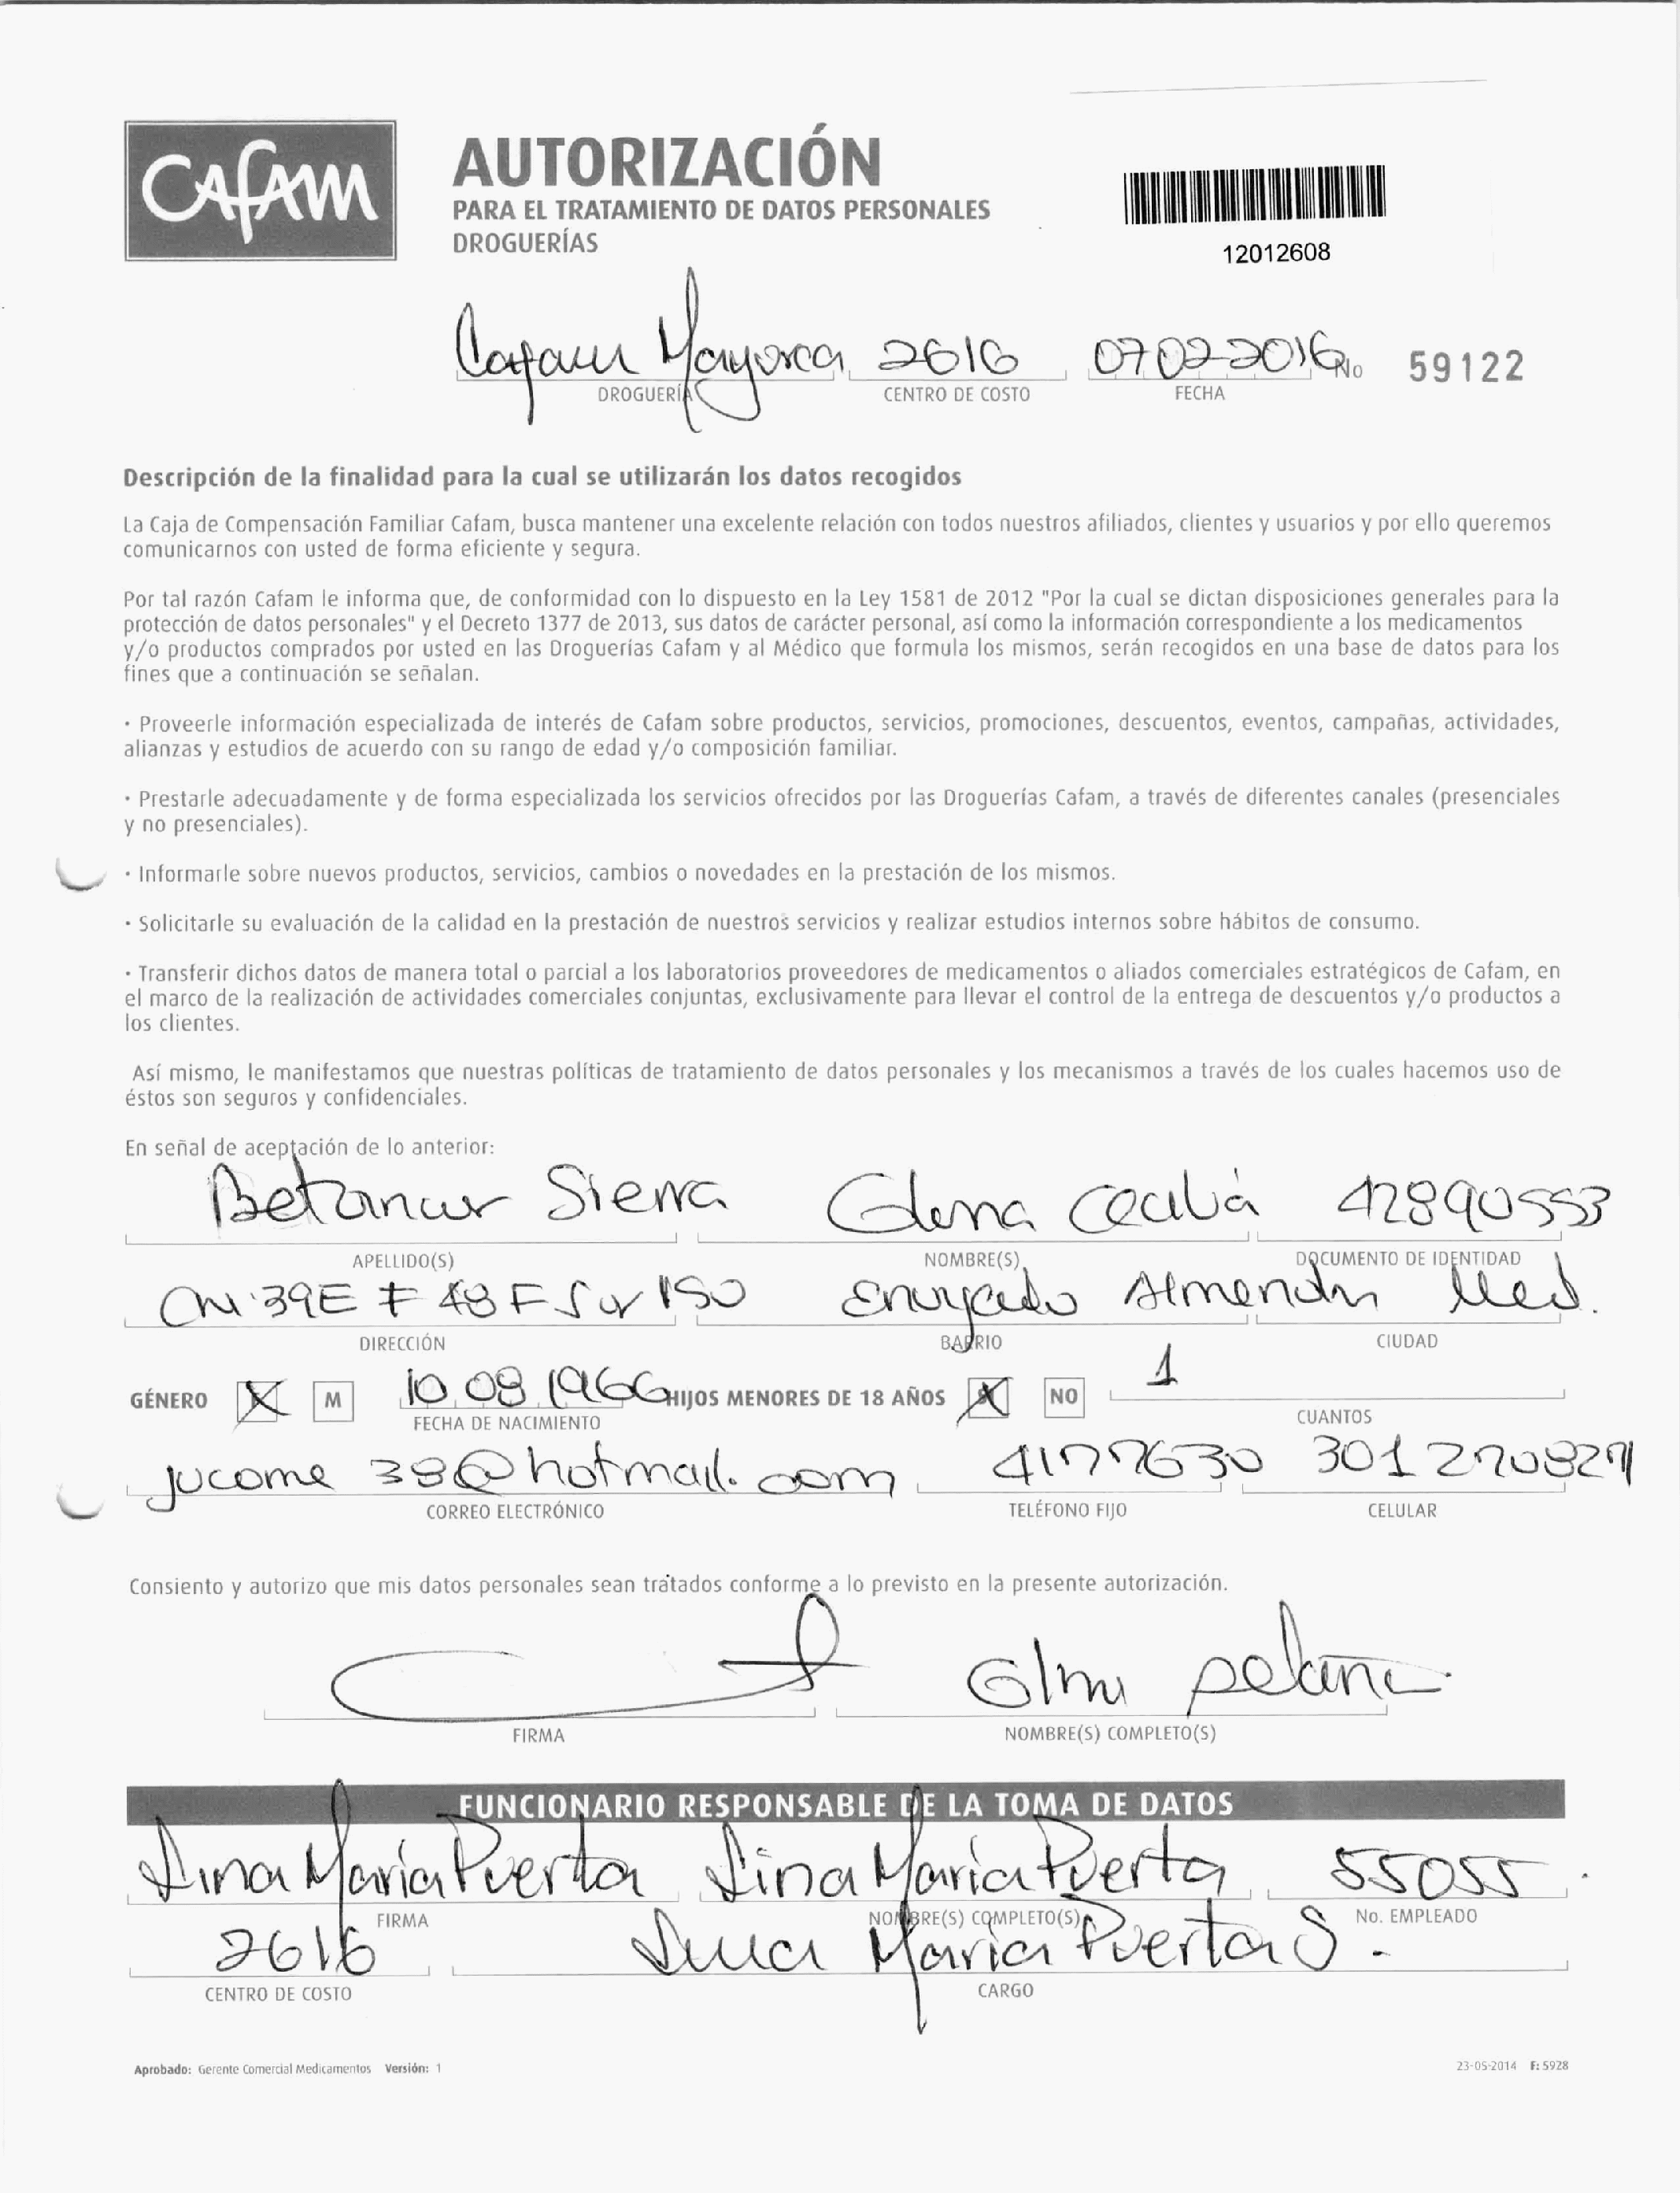 CAFAM
AUTORIZACIÓN
PARA EL TRATAMIENTO DE DATOS PERSONALES
DROGUERÍAS
12012608
Cafam Mayorca 2616 07 02 2016 No 59122
DROGUERÍA CENTRO DE COSTO FECHA
Descripción de la finalidad para la cual se utilizarán los datos recogidos
La Caja de Compensación Familiar Cafam, busca mantener una excelente relación con todos nuestros afiliados, clientes y usuarios y por ello queremos
comunicarnos con usted de forma eficiente y segura.
Por tal razón Cafam le informa que, de conformidad con lo dispuesto en la Ley 1581 de 2012 "Por la cual se dictan disposiciones generales para la
protección de datos personales" y el Decreto 1377 de 2013, sus datos de carácter personal, así como la información correspondiente a los medicamentos
y/o productos comprados por usted en las Droguerías Cafam y al Médico que formula los mismos, serán recogidos en una base de datos para los
fines que a continuación se señalan.
· Proveerle información especializada de interés de Cafam sobre productos, servicios, promociones, descuentos, eventos, campañas, actividades,
alianzas y estudios de acuerdo con su rango de edad y/o composición familiar.
· Prestarle adecuadamente y de forma especializada los servicios ofrecidos por las Droguerías Cafam, a través de diferentes canales (presenciales
y no presenciales).
· Informarle sobre nuevos productos, servicios, cambios o novedades en la prestación de los mismos.
· Solicitarle su evaluación de la calidad en la prestación de nuestros servicios y realizar estudios internos sobre hábitos de consumo.
· Transferir dichos datos de manera total o parcial a los laboratorios proveedores de medicamentos o aliados comerciales estratégicos de Cafam, en
el marco de la realización de actividades comerciales conjuntas, exclusivamente para llevar el control de la entrega de descuentos y/o productos a
los clientes.
Así mismo, le manifestamos que nuestras políticas de tratamiento de datos personales y los mecanismos a través de los cuales hacemos uso de
éstos son seguros y confidenciales.
En señal de aceptación de lo anterior:
Betancur Sierra Glema Cecilia 42890553
APELLIDO(S) NOMBRE(S) DOCUMENTO DE IDENTIDAD
39E # 48 F Sur 150 Envigado Med.
DIRECCIÓN BARRIO CIUDAD
GÉNERO M 10 08 1966 HIJOS MENORES DE 18 AÑOS NO 1
FECHA DE NACIMIENTO CUANTOS
jucome 38@hotmail.com 4177630 3012708271
CORREO ELECTRÓNICO TELÉFONO FIJO CELULAR
Consiento y autorizo que mis datos personales sean tratados conforme a lo previsto en la presente autorización.
FIRMA NOMBRE(S) COMPLETO(S)
FUNCIONARIO RESPONSABLE DE LA TOMA DE DATOS
Lina María Puerta Lina María Puerta 55055
FIRMA NOMBRE(S) COMPLETO(S) No. EMPLEADO
2616 Lina María Puerta S.
CENTRO DE COSTO CARGO
Aprobado: Gerente Comercial Medicamentos Versión: 1 23-05-2014 F: 5928